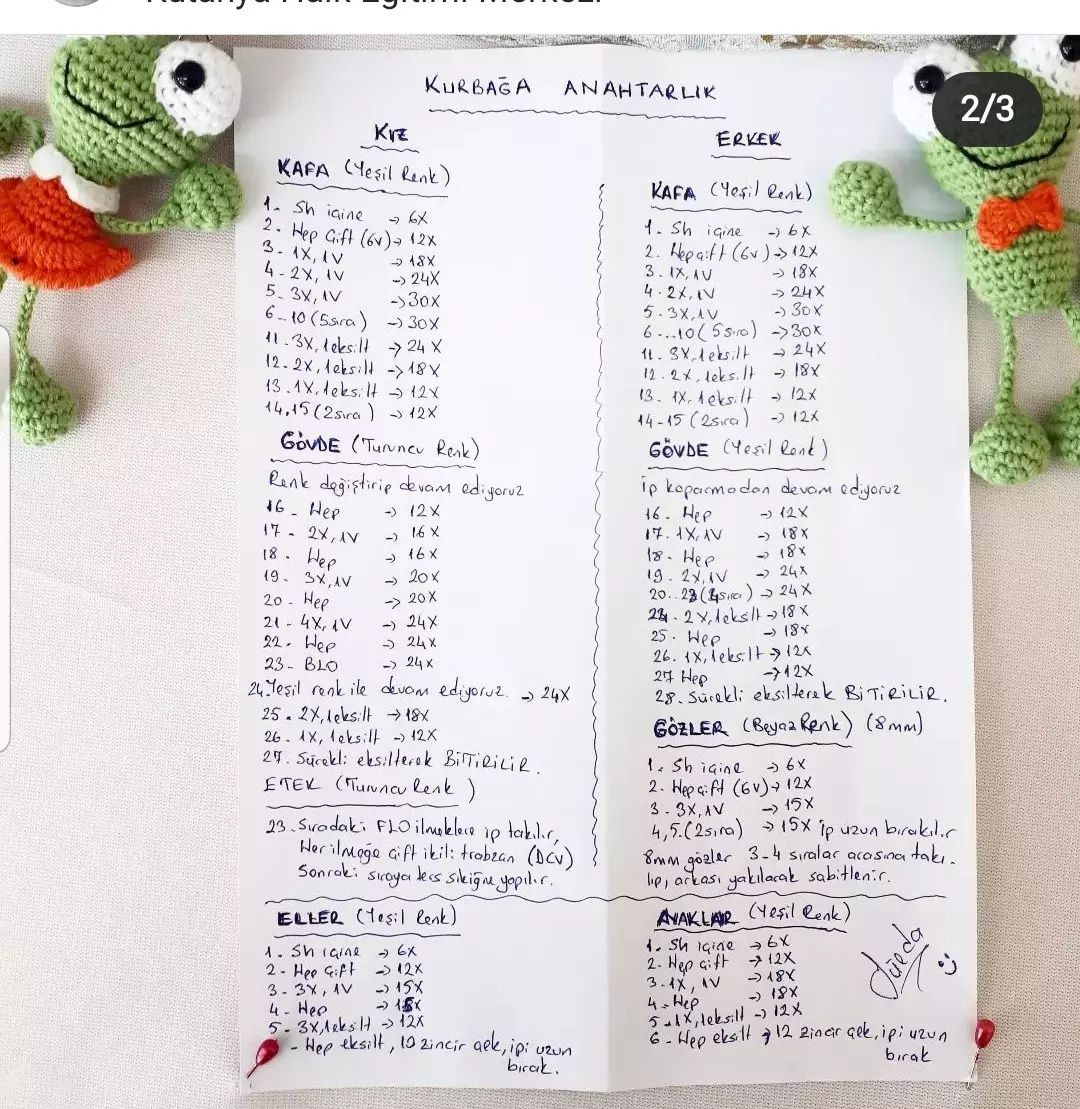 2/3
KURBAĞA ANAHTARLIK
KIZ
KAFA (Yeşil Renk)
1- Sh içine → 6X
2- Hep Çift (6v) → 12X
3- 1X, 1V → 18X
4- 2X, 1V → 24X
5- 3X, 1V → 30X
6..10 (5 sıra) → 30X
11-3X, 1eksilt → 24X
12-2X, 1eksilt → 18X
13.1X, 1eksilt → 12X
14,15 (2sıra) → 12X
GÖVDE (Turuncu Renk)
Renk değiştirip devam ediyoruz
16- Hep → 12X
17- 2X, 1V → 16X
18- Hep → 16X
19- 3X, 1V → 20X
20- Hep → 20X
21- 4X, 1V → 24X
22. Hep → 24X
23- BLO → 24X
24. Yeşil renk ile devam ediyoruz. → 24X
25. 2X, 1eksilt → 18X
26. 1X, 1eksilt → 12X
27. Sürekli eksilterek BİTİRİLİR.
ETEK (Turuncu Renk)
23. Sıradaki FLO ilmeklere ip takılır,
Her ilmeğe çift ikili trabzan (DCV)
Sonraki sıraya ters sık iğne yapılır.
ERKEK
KAFA (Yeşil Renk)
1. Sh içine → 6X
2. Hep çift (6v) → 12X
3. 1X, 1V → 18X
4. 2X, 1V → 24X
5. 3X, 1V → 30X
6...10 (5 sıra) → 30X
11. 3X, 1eksilt → 24X
12. 2X, 1eksilt → 18X
13. 1X, 1eksilt → 12X
14-15 (2sıra) → 12X
GÖVDE (Yeşil Renk)
İp koparmadan devam ediyoruz
16. Hep → 12X
17. 1X, 1V → 18X
18- Hep → 18X
19. 2X, 1V → 24X
20..23 (4sıra) → 24X
24. 2X, 1eksilt → 18X
25. Hep → 18X
26. 1X, 1eksilt → 12X
27 Hep → 12X
28. Sürekli eksilterek BİTİRİLİR.
GÖZLER (Beyaz Renk) (8mm)
1. Sh içine → 6X
2. Hep çift (6V) → 12X
3. 3X, 1V → 15X
4,5. (2sıra) → 15X ip uzun bırakılır
8mm gözler 3-4 sıralar arasına takı-
lıp, arkası yakılarak sabitlenir.
ELLER (Yeşil Renk)
1. Sh içine → 6X
2- Hep Çift → 12X
3- 3X, 1V → 15X
4- Hep → 15X
5- 3X, 1eksilt → 12X
- Hep eksilt, 10 zincir çek, ipi uzun
bırak.
AYAKLAR (Yeşil Renk)
1. Sh içine → 6X
2. Hep çift → 12X
3. 1X, 1V → 18X
4. Hep → 18X
5. 1X, 1eksilt → 12X
6- Hep eksilt → 12 zincir çek, ipi uzun
bırak